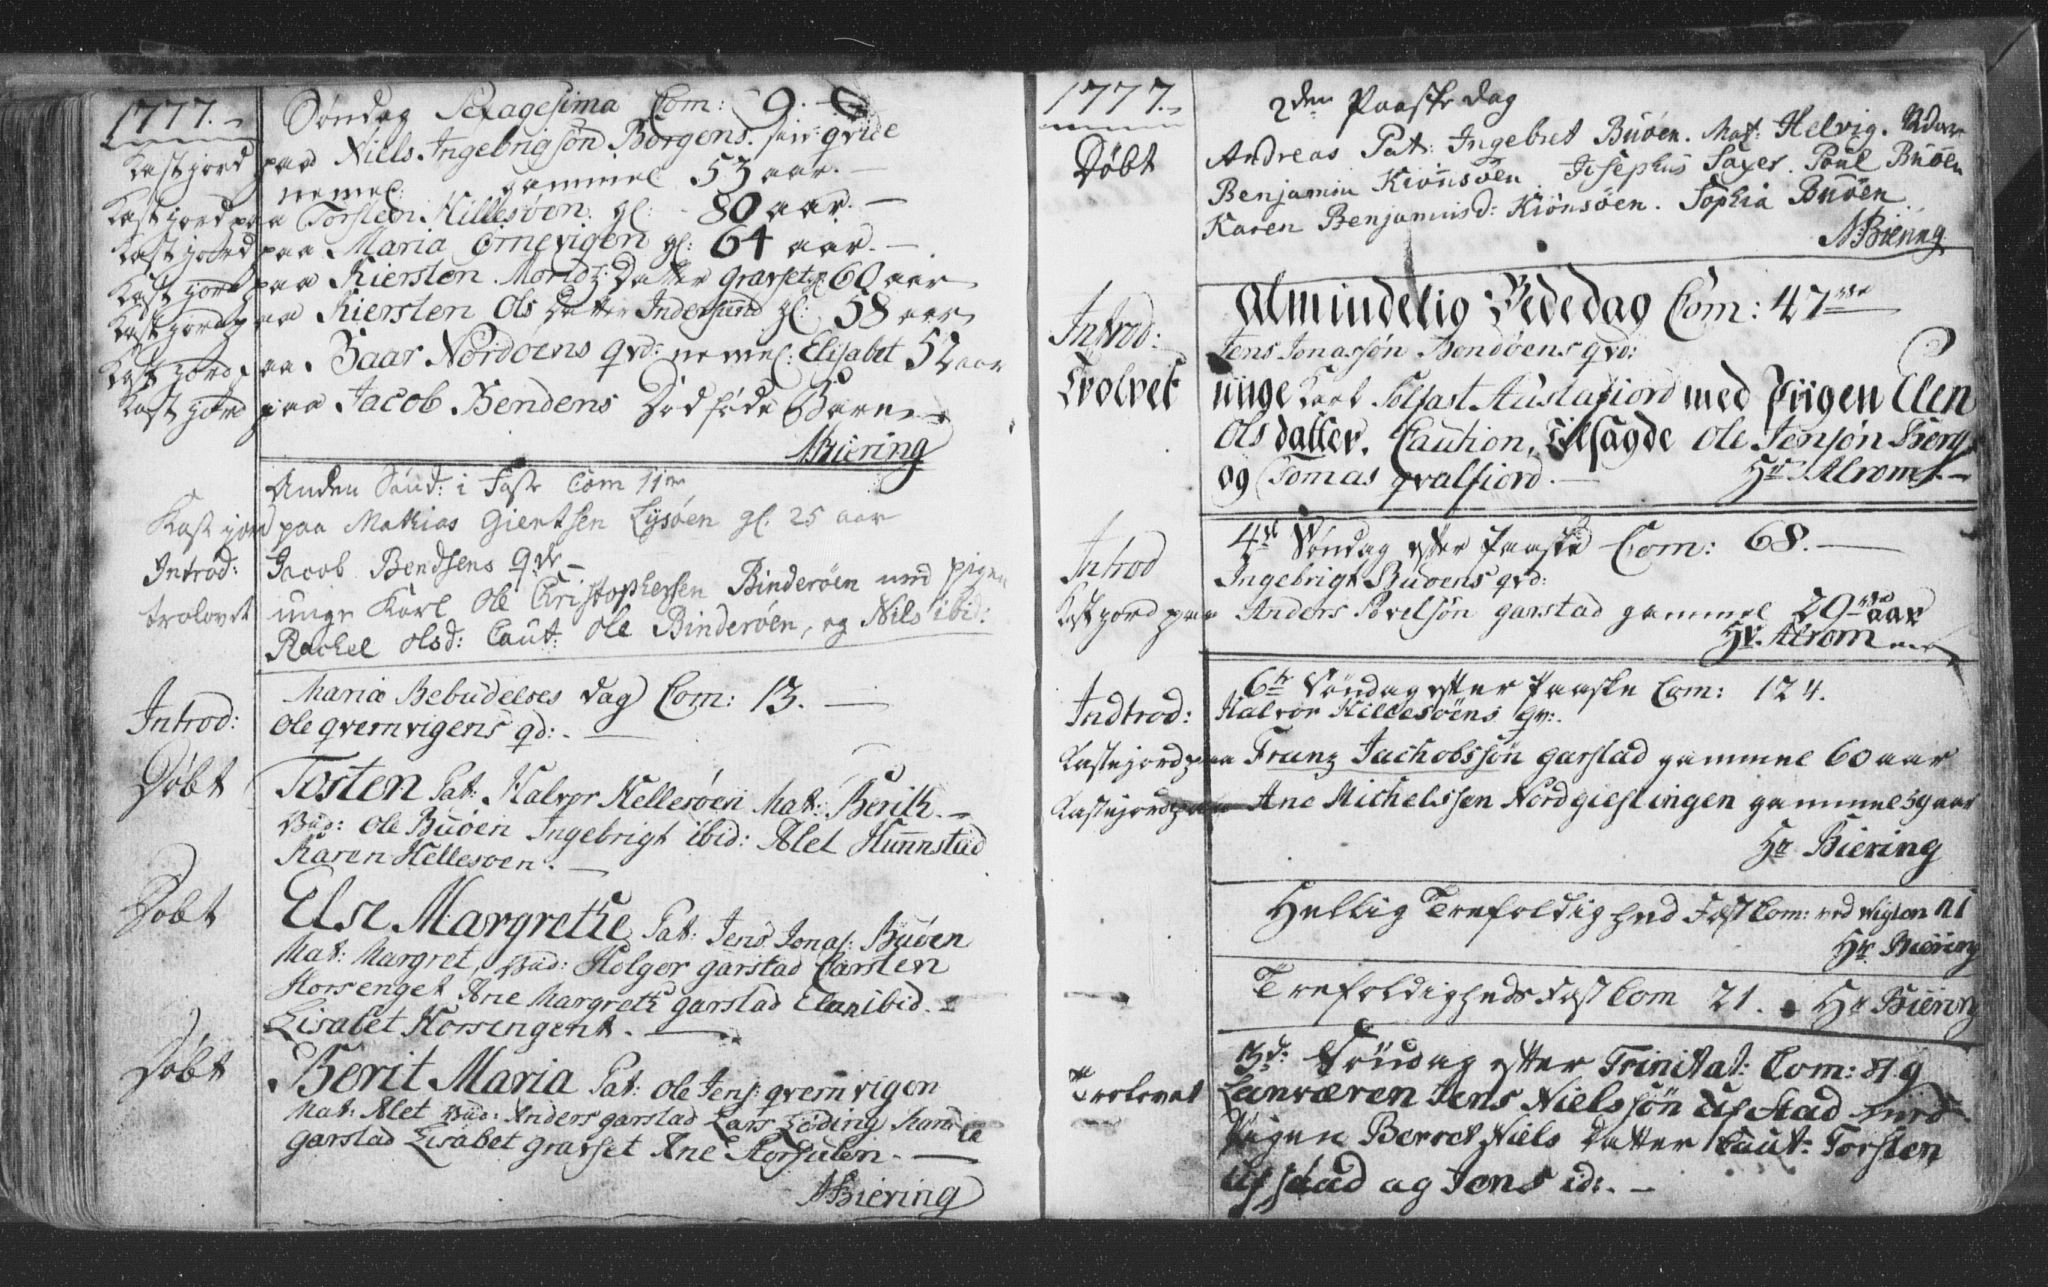 1777.
Søndag Sexagesima Com: 9.
Kast jord paa Niels Ingebrigsøn Borgens qvide
nemel: gammel 53 aar.
Kast jord paa Torsten Hillesøen. gl: 80 aar.
Kast jord paa Maria Ørnevigen gl: 64 aar.
Kast jord paa Kiersten Moridz: Datter gravset gl: 60 aar
Kast jord paa Kiersten Ols Datter Indersund gl: 58 aar
Kast jord paa Baar Nordøens qvd: nemel: Elisabet 52 aar
Kast jord paa Jacob Bendens Død føde Barn
NBiering
Anden Sønd: i Faste Com 11
Kast jord paa Mathias Giertsen Lysøen gl. 25 aar
Introd: Jacob Bendsens qv
trolovet unge Karl Ole Christophersen Binderøen med pigen
Rachel Olsd: Caut: Ole Binderøen, og Niels ibid:
Mariæ Bebudelses Dag Com: 13.
Introd: Ole qvernvigens qd:
Døbt Tosten Pat: Halvor Hellesøen Mat: Berith.
Ole Buøen Ingebrigt ibid: Alet Hunnstad
Karen Hellesøen.
Døbt Else Margrethe Pat: Jens Jonas: Buøen
Mat: Margret, Holger garstad Carsten
Horsenget Ane Margreth garstad Elen ibid.
Lisabet Horsengent.
Døbt Berit Maria Pat: Ole Jens: qvernvigen
Mat: Alet Anders garstad Lars Løding
garstad Lisabet gravset Ane Storsalen.
NBiering
1777.
2den Paaske Dag
Døbt Andreas Pat: Ingebret Buøen. Mat: Helvig.
Benjamin Kiønsøen Josephus Saxer. Poul Buøen
Karen Benjaminsd: Kiønsøen. Sophia Buøen.
NBiering
Almindelig Bededag Com: 47
Introd: Jens Jonassøn Hendøens qvd:
Trolvet unge Karl Tolfast Austafjord med Piigen Elen
Ols datter. Caution, tilsagde Ole Jensøn Berg
og Tomas qvalfiord. Hr Alrom
4de Søndag efter Paaske Com: 68.
Introd Ingebrigt Buøens qvd:
Kast jord paa Anders Povelsøn garstad gammel 29 aar
Hr. Alrom
6te Søndag efter Paaske Com: 124.
Indtrod: Halvor Hildesøens qv:
Kaste jord paa Franz Jachobssøn garstad gammel 60 aar
Kaste jord paa Ane Michelssen Nordgieslingen gammel 59 aar
Hr Biering
Hellig Trefoldighed Fest Com: ved Vigten 41
Hr Biering
Trefoldigheds Fest Com 21. Hr Biering
3de Søndag efter Trinitat: Com: 81
Trolovet Jens Nielssøn Ufstad med
Pigen Berret Niels Datter Caut: Torsten
Ufstad og Jens id: